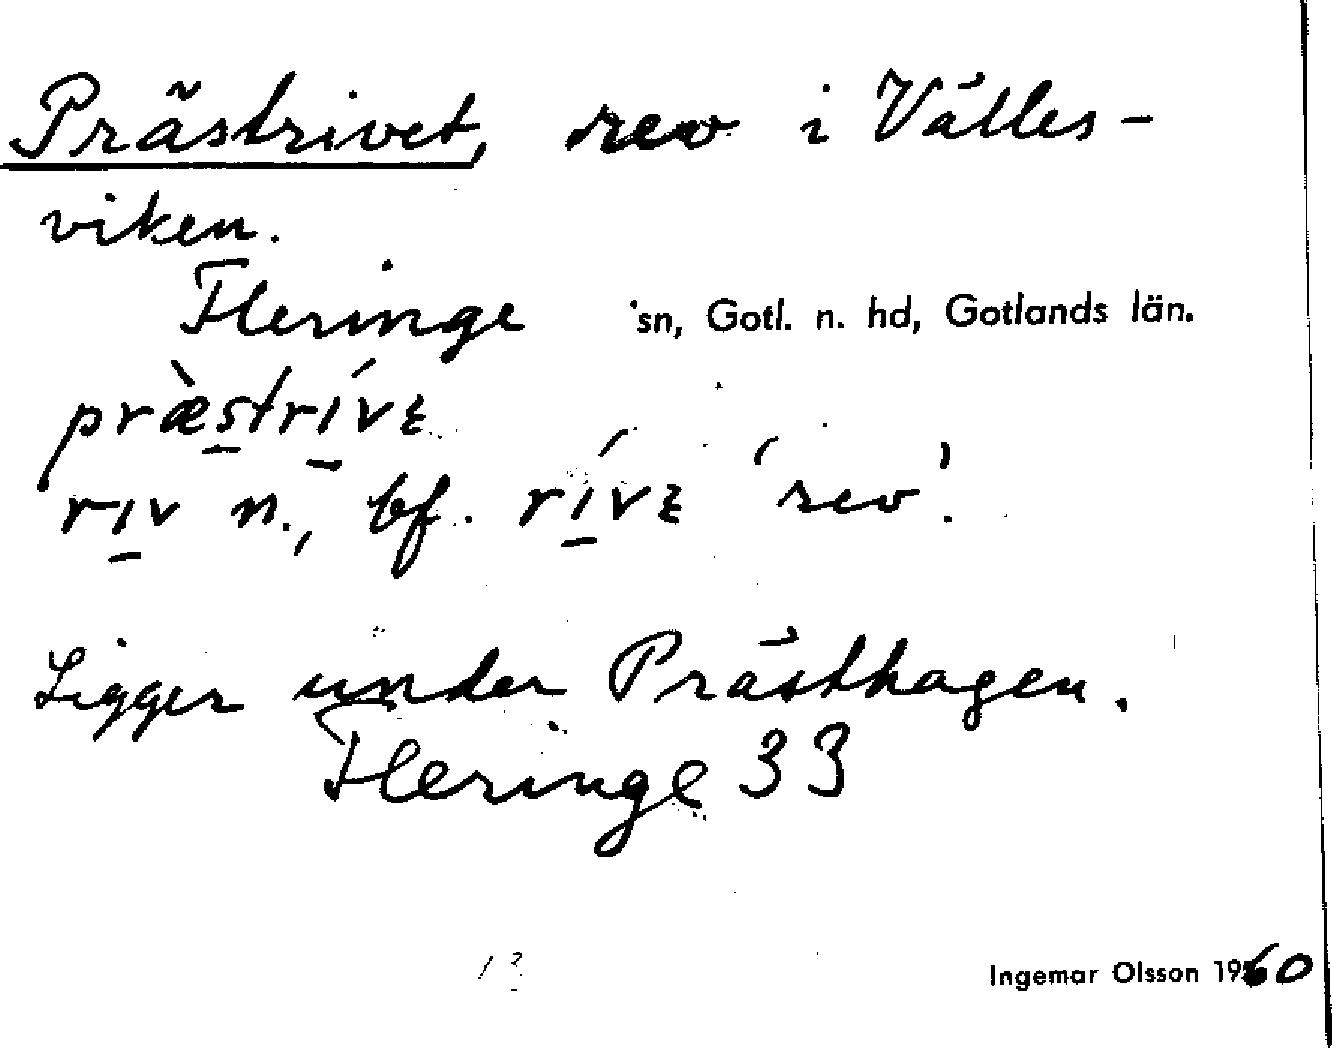 Prästrivet, rev i Välles-
viken.
Fleringe sn, Gotl. n. hd, Gotlands län.
præ̀strívɛ
rıv n., bf. rívɛ 'rev'.
Ligger under Prästhagen.
Fleringe 33
Ingemar Olsson 1960